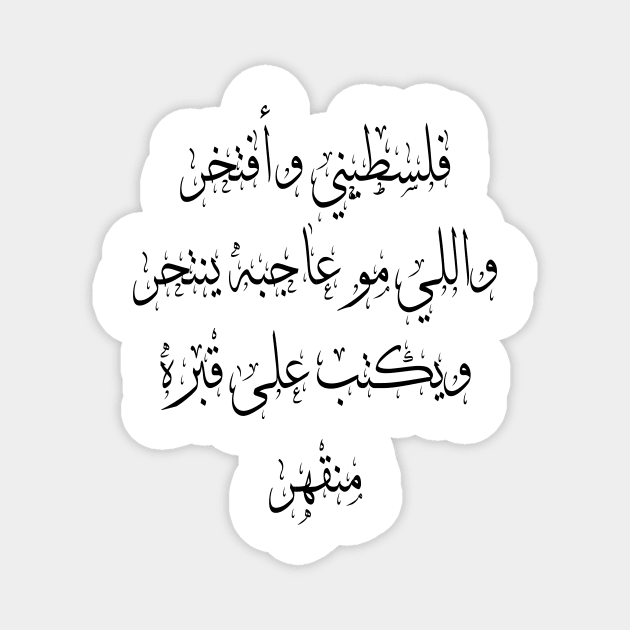 فلسطيني وأفتخر
واللي مو عاجبه ينتحر
ويكتب على قبره
منقهر